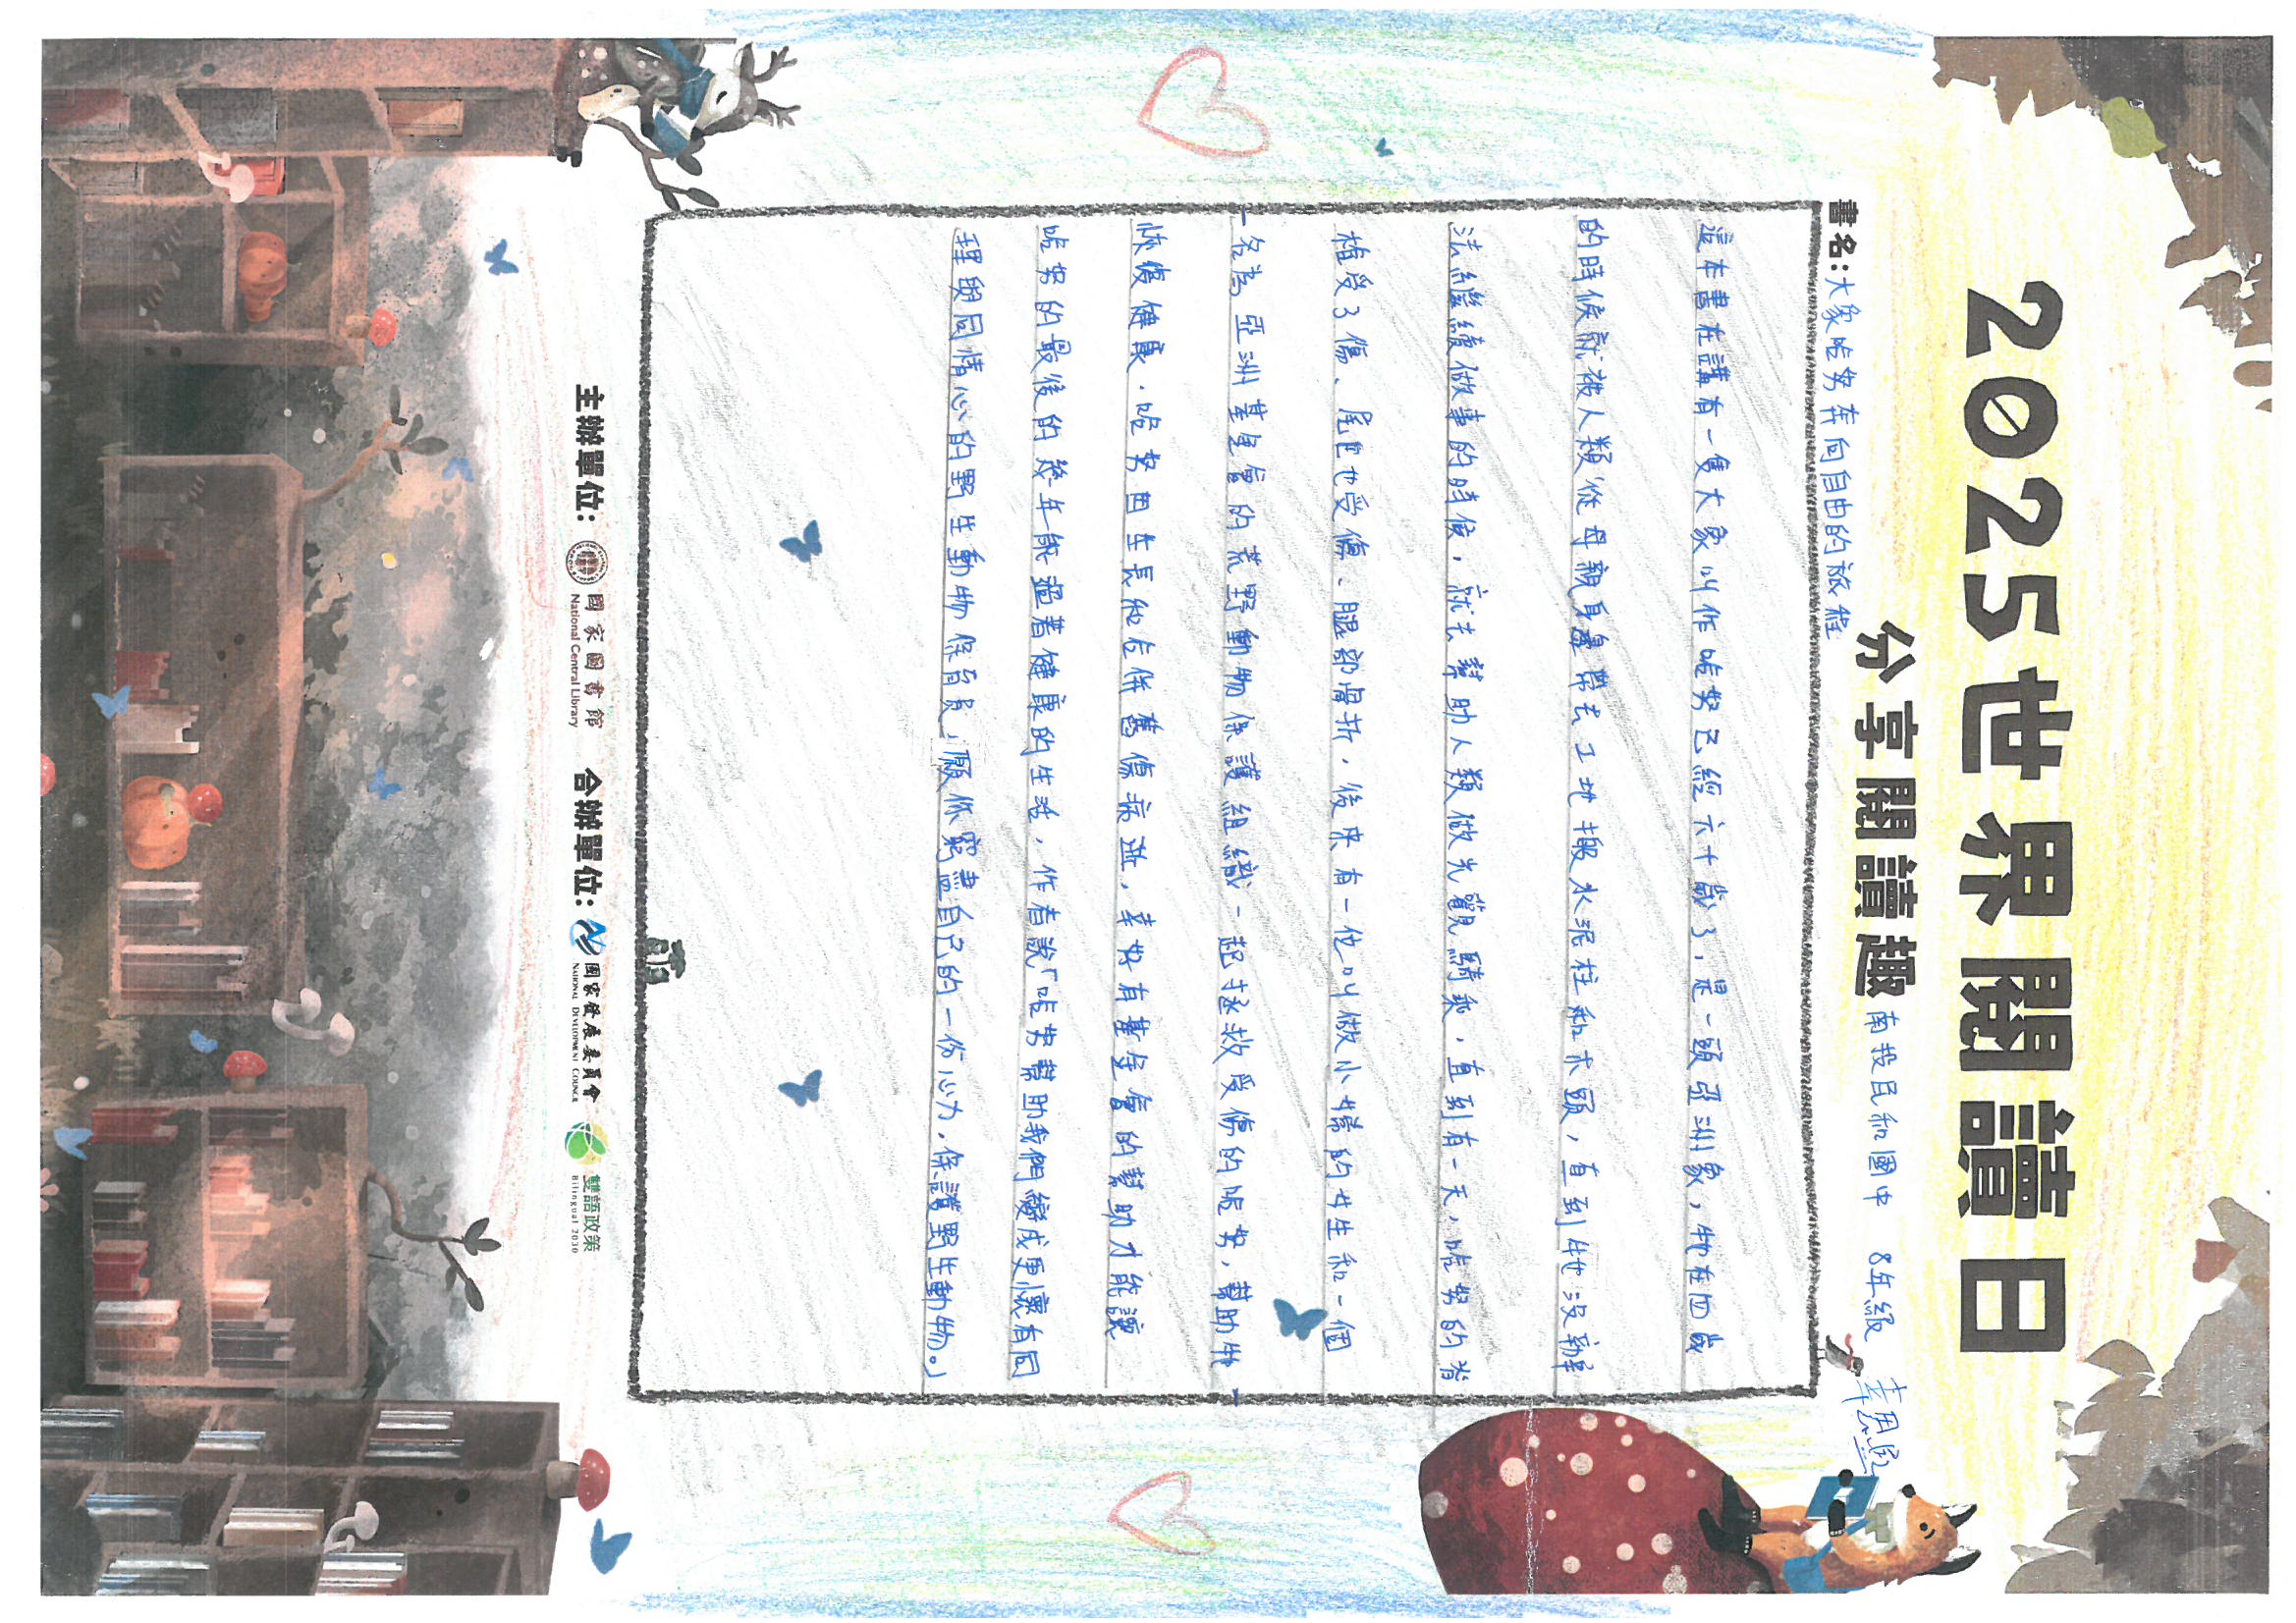 2025世界閱讀日
分享閱讀趣
南投民和國中 8年級
書名:大象哈努奔向自由的旅程
這本書在講有一隻大象叫作哈努已經六十歲了,是一頭亞洲象,牠在四歲
的時候就被人類從母親身邊帶去工地搬水泥柱和木頭,直到牠沒辦
法繼續做事的時候,就去幫助人類做光觀騎乘,直到有一天,哈努的脊
椎受了傷、尾巴也受傷、腿部骨折,後來有一位叫做小嫞的女生和一個
名為亞洲基金會的荒野動物保護組織一起拯救受傷的哈努,幫助牠
恢復健康.哈努因年長和合併舊傷病逝,幸好有基金會的幫助才能讓
哈努的最後的幾年能過著健康的生活,作者說「哈努幫助我們變成更懷有同
理與同情心的野生動物保育員」願你窮盡自己的一份心力,保護野生動物。」
主辦單位:
國家圖書館
National Central Library
合辦單位:
國家發展委員會
NATIONAL DEVELOPMENT COUNCIL
雙語政策
Bilingual 2030